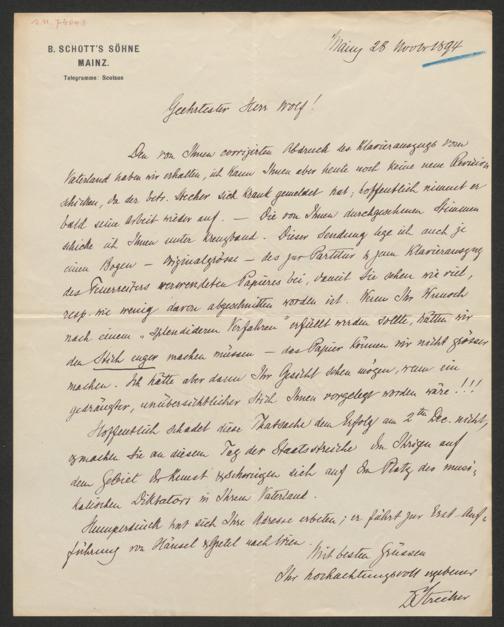 B. SCHOTT'S SÖHNE
MAINZ.
Telegramme: Scotson
Mainz 28 Novbr 1894
Geehrtester Herr Wolf!
Den von Ihnen corrigirten Abdruck des Klavierauszugs vom
Vaterland haben wir erhalten, ich kann Ihnen aber heute noch keine neue Revision
schicken, da der betr. Stecher sich krank gemeldet hat; hoffentlich nimmt er
bald seine Arbeit wieder auf. — Die von Ihnen durchgesehenen Stimmen
schicke ich Ihnen unter Kreuzband. Dieser Sendung lege ich auch je
einen Bogen — Originalgrösse — des zur Partitur & zum Klavierauszug
des Feuerreiters verwendeten Papieres bei, damit Sie sehen wie viel,
resp. wie wenig davon abgeschnitten worden ist. Wenn Ihr Wunsch
nach einem „splendideren Verfahren" erfüllt werden sollte, hätten wir
den Stich enger machen müssen — das Papier können wir nicht grösser
machen. Ich hätte aber dann Ihr Gesicht sehen mögen, wenn ein
gedrängter, unübersichtlicher Stich Ihnen vorgelegt worden wäre!!!
Hoffentlich schadet diese Thatsache dem Erfolg am 2ten Dec. nicht,
& machen Sie an diesem Tag der Staatsstreiche den Ihrigen auf
dem Gebiet der Kunst & schwingen sich auf den Platz des musi-
kalischen Diktators in Ihrem Vaterland.
Humperdinck hat sich Ihre Adresse erbeten; er fährt zur Erst-Auf-
führung von Hänsel & Gretel nach Wien.
Mit besten Grüssen
Ihr hochachtungsvoll ergebener
Dr Strecker